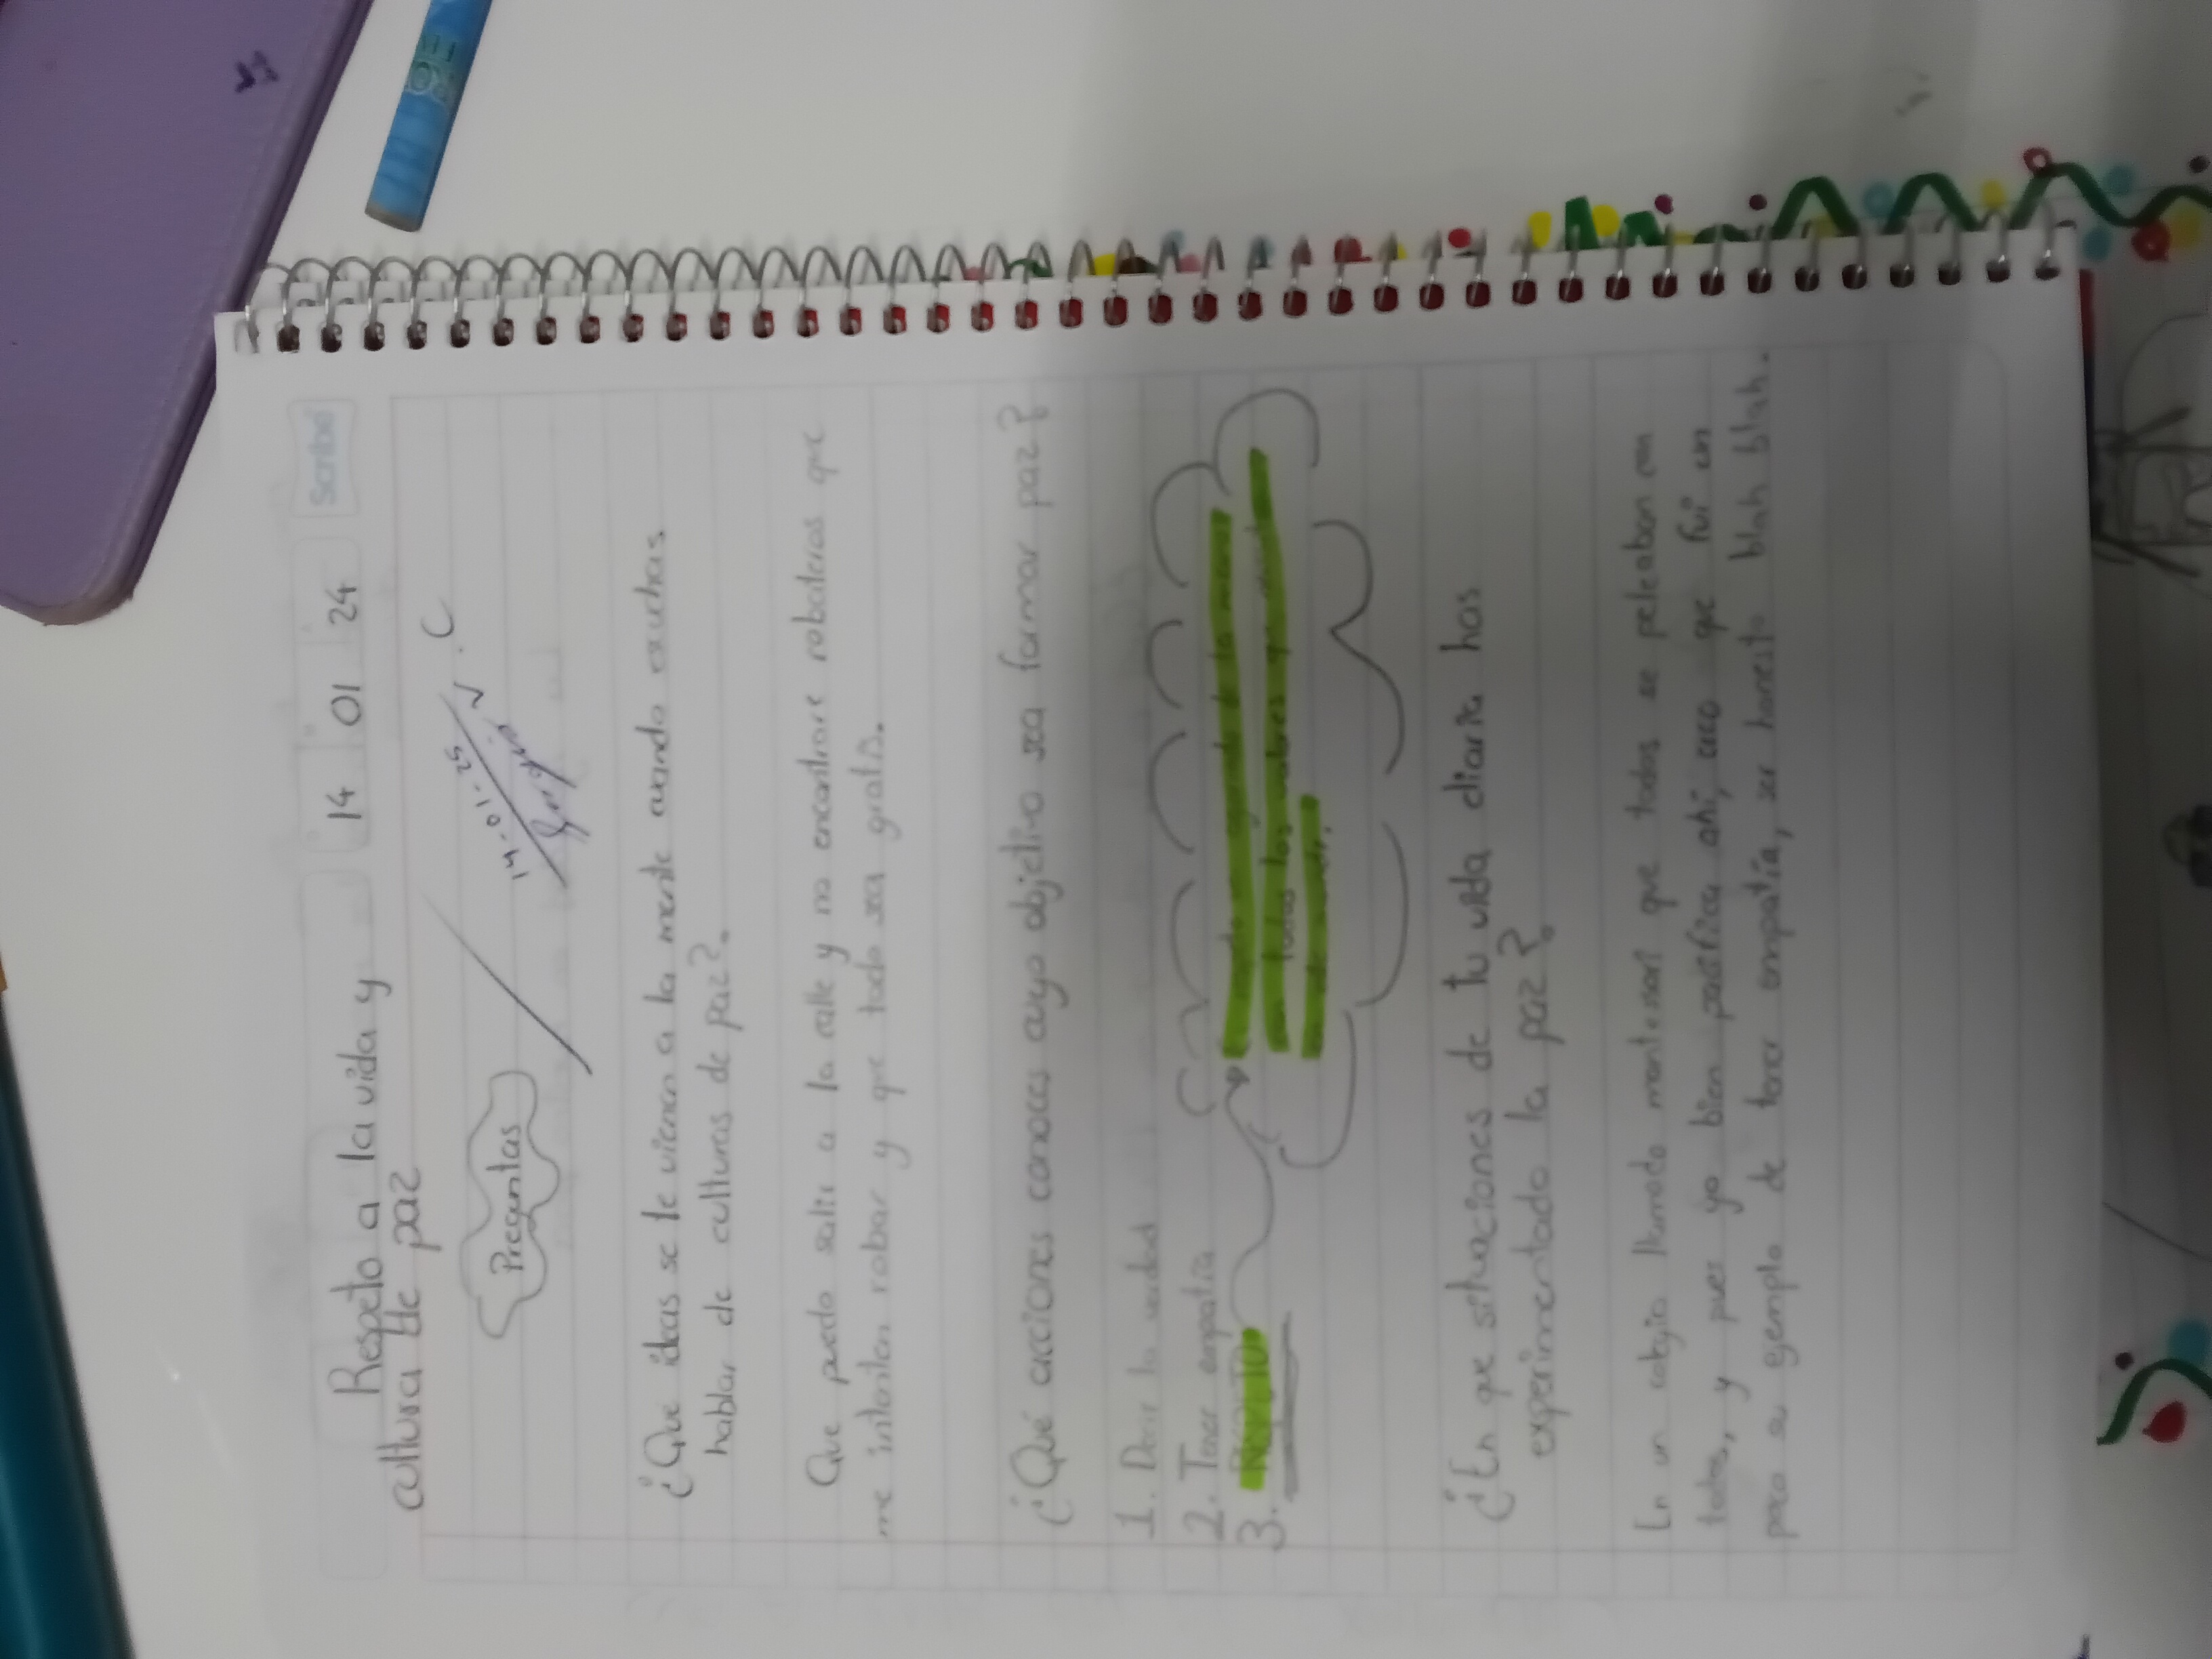 Scribe
14 01 24
Respeto a la vida y
cultura de paz
14-01-25
Preguntas
¿Que ideas se te vienen a la mente cuando escuchas
hablar de culturas de paz?.
Que puedo salir a la calle y no encontrare robateros que
me intenten robar y que todo sea gratis.
¿Qué acciones conoces cuyo objetivo sea formar paz?
1. Decir la verdad
2. Tener empatía
3. RESPETO
todos los valores que
¿En que situaciones de tu vida diaria has
experimentado la paz?
En un colegio llamado montessori que todos se peleaban con
todos, y pues yo bien pacífica ahí, creo que fui un
poco su ejemplo de tener empatía, ser honesto blah blah.